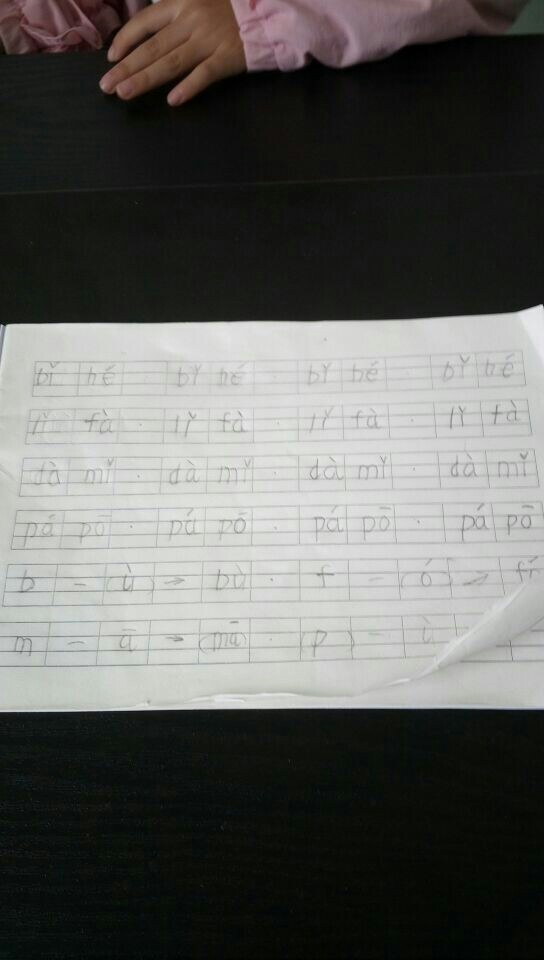 bǐ hé · bǐ hé · bǐ hé · bǐ hé
lǐ fà · lǐ fà · lǐ fà · lǐ fà
dà mǐ · dà mǐ · dà mǐ · dà mǐ
pá pō · pá pō · pá pō · pá pō
b – (ù) → bù · f – (ó) →
m – ā → (mā) · (p) – ù